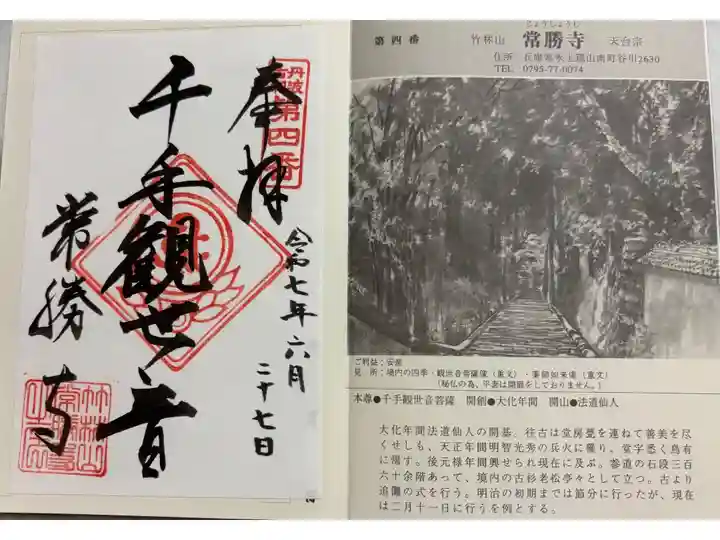 奉拝
古丹波
第四番
千手観世音
常勝寺
令和七年六月
二十七日
じょうしょうじ
第四番 竹林山 常勝寺 天台宗
住所 兵庫県氷上郡山南町谷川2630
TEL 0795-77-0074
ご利益:安産
見所:境内の四季・観世音菩薩像(重文)・薬師如来像(重文)
〔秘仏の為、平素は開扉をしておりません。〕
本尊●千手観世音菩薩 開創●大化年間 開山●法道仙人
大化年間法道仙人の開基。往古は堂房甍を連ねて善美を尽
くせしも、天正年間明智光秀の兵火に罹り、堂宇悉く烏有
に帰す。後元禄年間興せられ現在に及ぶ。参道の石段三百
六十余階あって、境内の古杉老松亭々として立つ。古より
追儺の式を行う。明治の初期までは節分に行ったが、現在
は二月十一日に行うを例とする。